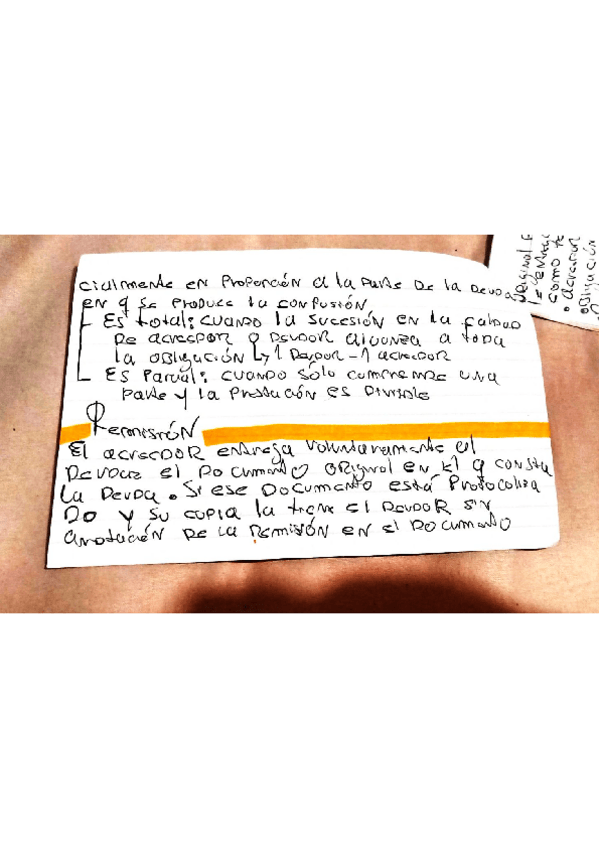 cialmente en proporción a la parte de la deuda
en q se produce la confusión
Es total: cuando la sucesión en la calidad
de acreedor o deudor alcanza a toda
la obligación ↳ 1 deudor - 1 acreedor
Es parcial: cuando sólo comprende una
parte y la prestación es divisible
Remisión
El acreedor entrega voluntariamente al
deudor el documento original en el q consta
la deuda. Si ese documento está protocoliza
do y su copia la tiene el deudor sin
anotación de la remisión en el documento
original
como te
acreedor
obligación